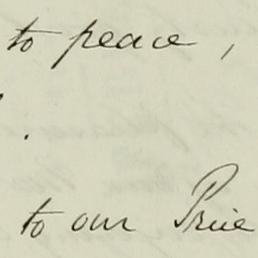 to peace,
.
to our Price